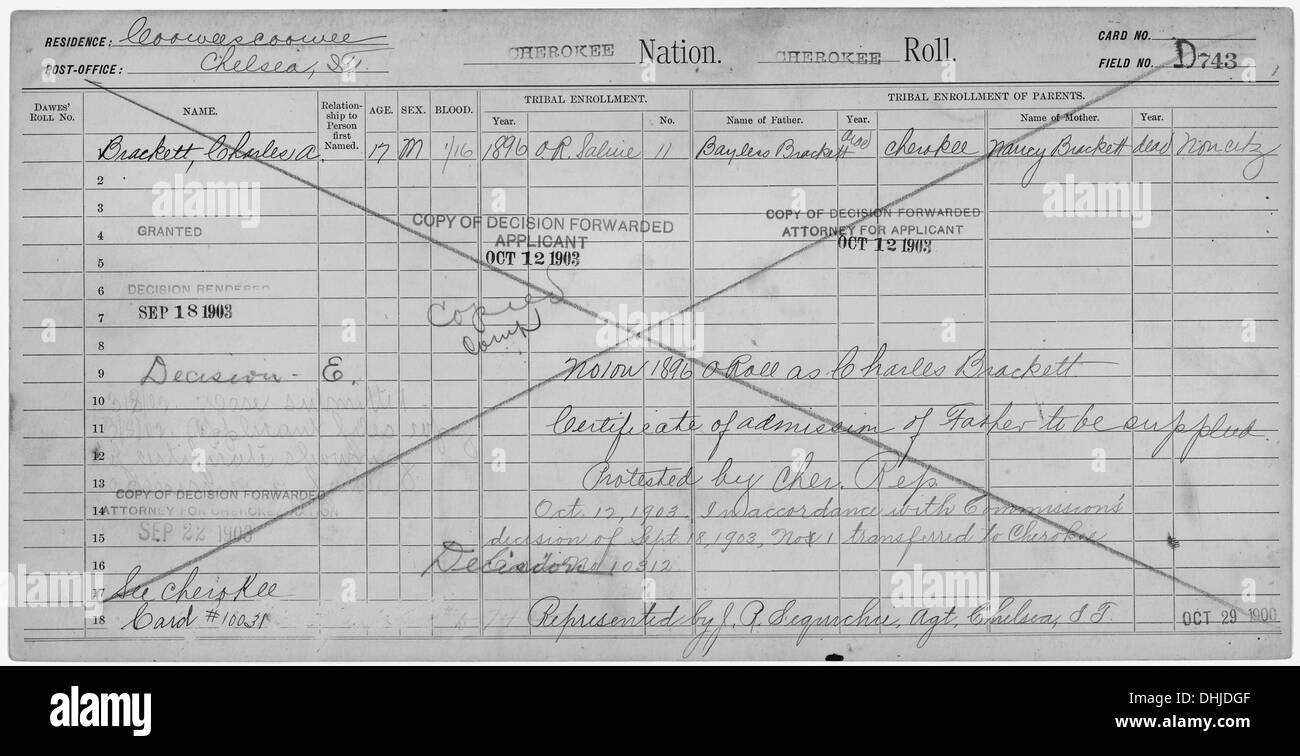 RESIDENCE: Cooweescoowee
POST-OFFICE: Chelsea, I.T.
CHEROKEE Nation. CHEROKEE Roll.
CARD NO.
FIELD NO. D743
DAWES' ROLL NO. NAME. Relationship to Person first Named. AGE. SEX. BLOOD. TRIBAL ENROLLMENT. Year. No. TRIBAL ENROLLMENT OF PARENTS. Name of Father. Year. Name of Mother. Year.
Brackett, Charles A. 17 M 1/16 1896 O.R. Saline 11 Bayless Brackett dead Cherokee Nancy Brackett dead Noncitz
2
3
COPY OF DECISION FORWARDED APPLICANT OCT 12 1903
COPY OF DECISION FORWARDED ATTORNEY FOR APPLICANT OCT 12 1903
4 GRANTED
5
6 DECISION RENDERED
7 SEP 18 1903
Copied
Comp
8
9 Decision - E. No 1 on 1896 O Roll as Charles Brackett
10
11 Certificate of admission of Father to be supplied.
12
13 Protested by Cher. Rep.
COPY OF DECISION FORWARDED
14 Oct. 12, 1903. In accordance with Commission's
ATTORNEY FOR CHEROKEE NATION
SEP 22 1903
15 decision of Sept 18, 1903, No 1 transferred to Cherokee
16 Decision 10312
17 See Cherokee
18 Card # Represented by J. R. Agt, Chelsea, I.T. OCT 29 1900
alamy
alamy
alamy
alamy
alamy
alamy
alamy
Image ID: DHJDGF
www.alamy.com